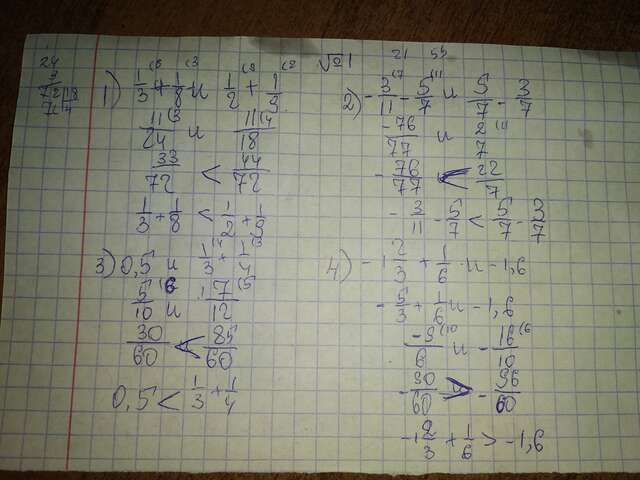 №1
24
3
72 18
72 4
1) 1/3 + 1/8 и 1/2 + 1/9
11/24 и 11/18
33/72 < 44/72
1/3 + 1/8 < 1/2 + 1/9
21 55
2) - 3/11 - 5/7 и 5/7 - 3/7
-76/77 и 2/7
- 76/77 < 22/7
- 3/11 - 5/7 < 5/7 - 3/7
3) 0,5 и 1/3 + 1/4
5/10 и 7/12
30/60 < 35/60
0,5 < 1/3 + 1/4
4) - 1 2/3 + 1/6 и - 1,6
- 5/3 + 1/6 и - 1,6
-9/6 и - 16/10
- 90/60 > - 96/60
- 1 2/3 + 1/6 > - 1,6